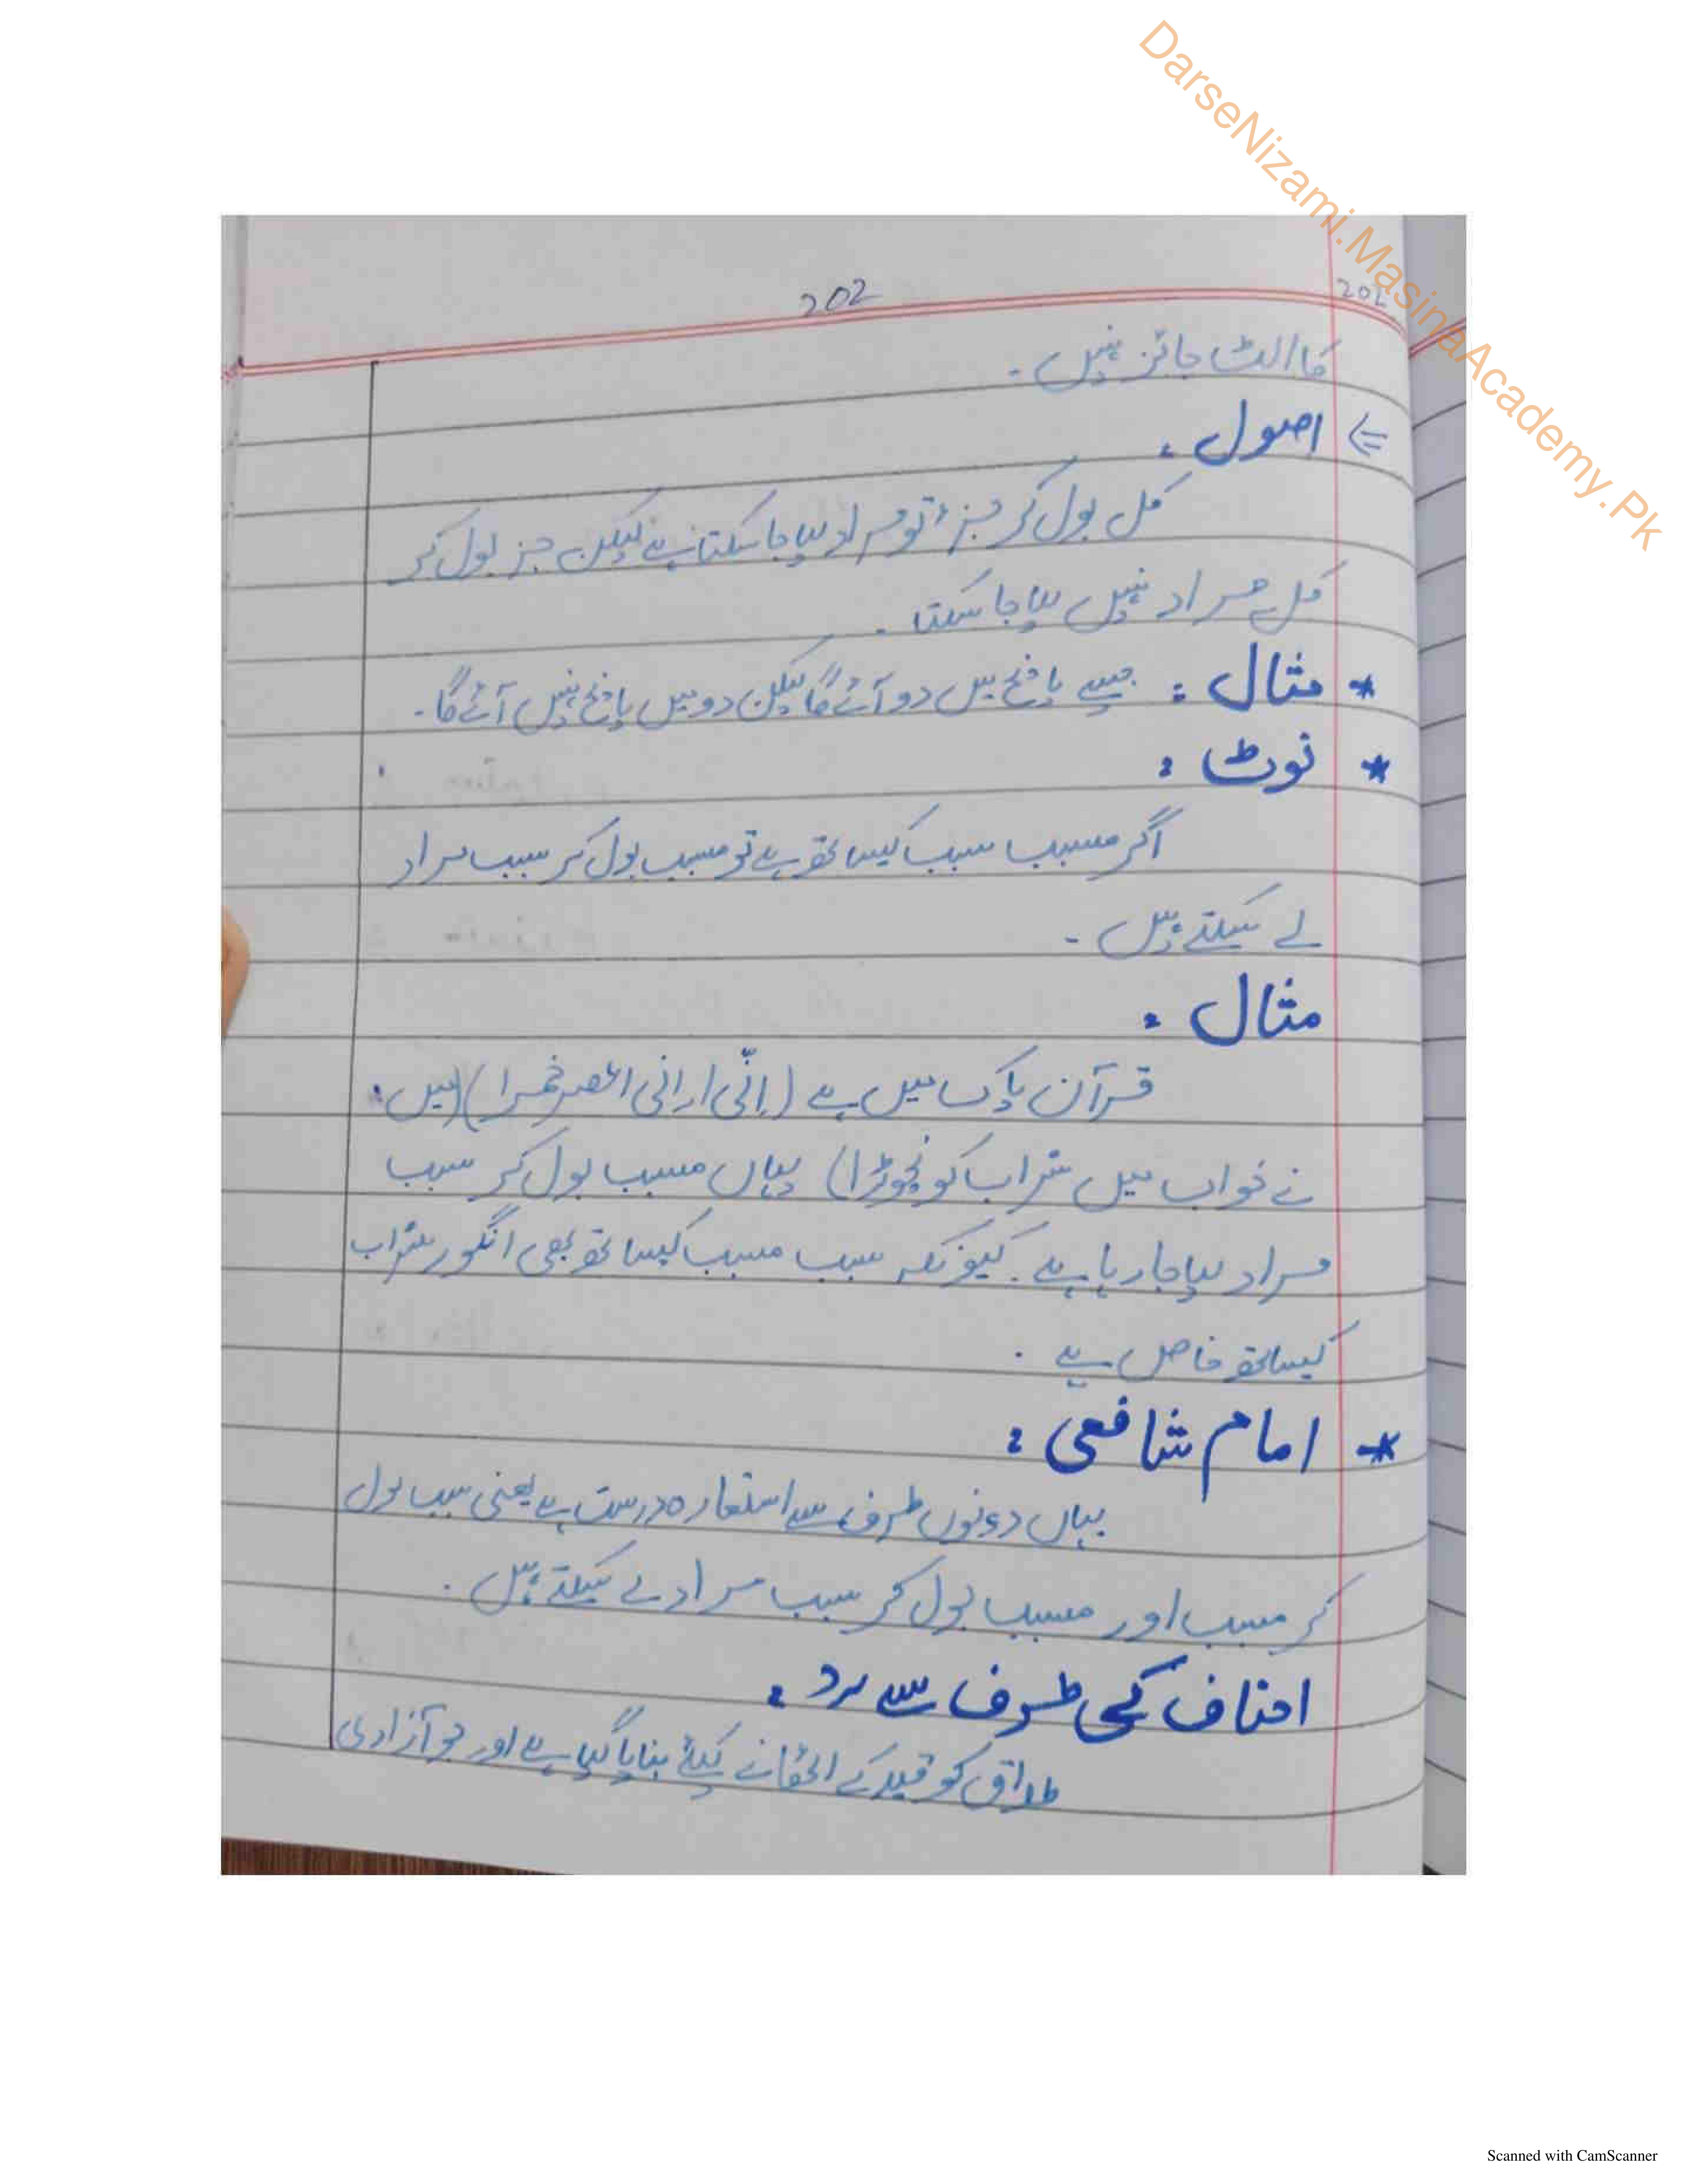 DarseNizami.MasinaAcademy.Pk
202
202
کا الٹ جائز نہیں ۔
⇐ اصول :
کل بول کر جزء تو مراد لیا جا سکتا ہے لیکن جز بول کر
کل مراد نہیں لیا جا سکتا ۔
* مثال : جیسے پانچ میں دو آئے گا لیکن دو میں پانچ نہیں آئے گا ۔
* نوٹ :
اگر مسبب سبب کیساتھ ہے تو مسبب بول کر سبب مراد
لے سکتے ہیں ۔
مثال :
قرآن پاک میں ہے (انّی ارانی اعصر خمرا) (میں
نے خواب میں شراب کو نچوڑا) یہاں مسبب بول کر سبب
مراد لیا جا رہا ہے . کیونکہ سبب مسبب کیساتھ بھی انگور شراب
کیساتھ خاص ہے .
* امام شافعی :
یہاں دونوں طرف سے استعارہ درست ہے یعنی سبب بول
کر مسبب اور مسبب بول کر سبب مراد لے سکتے ہیں .
احناف کی طرف سے رد :
طلاق کو قید کے اٹھانے کیلئے بنایا گیا ہے اور جو آزادی
Scanned with CamScanner